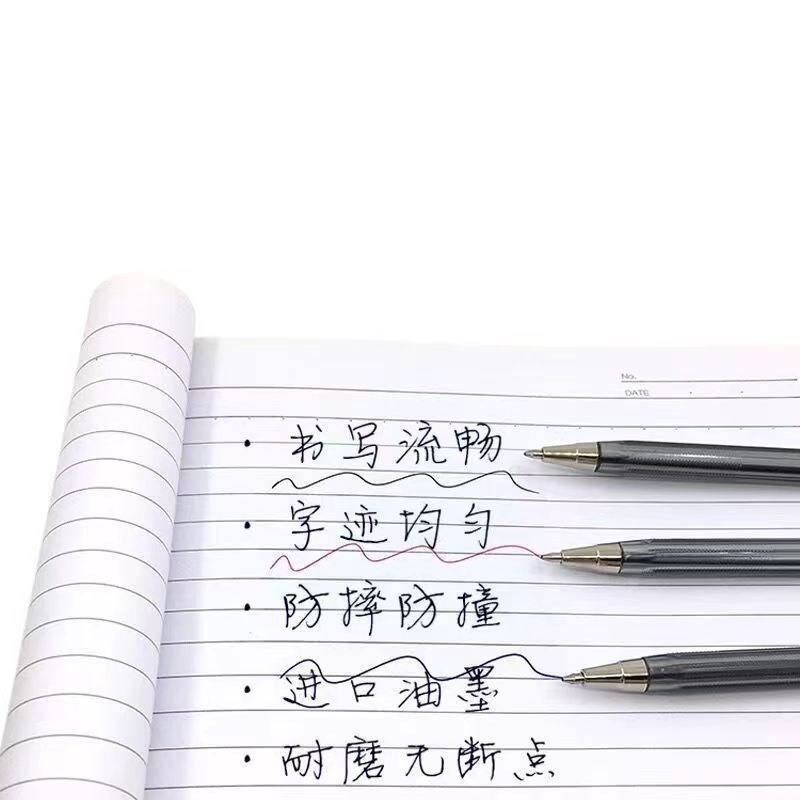 No.
DATE
· 书写流畅
· 字迹均匀
· 防摔防撞
· 进口油墨
· 耐磨无断点